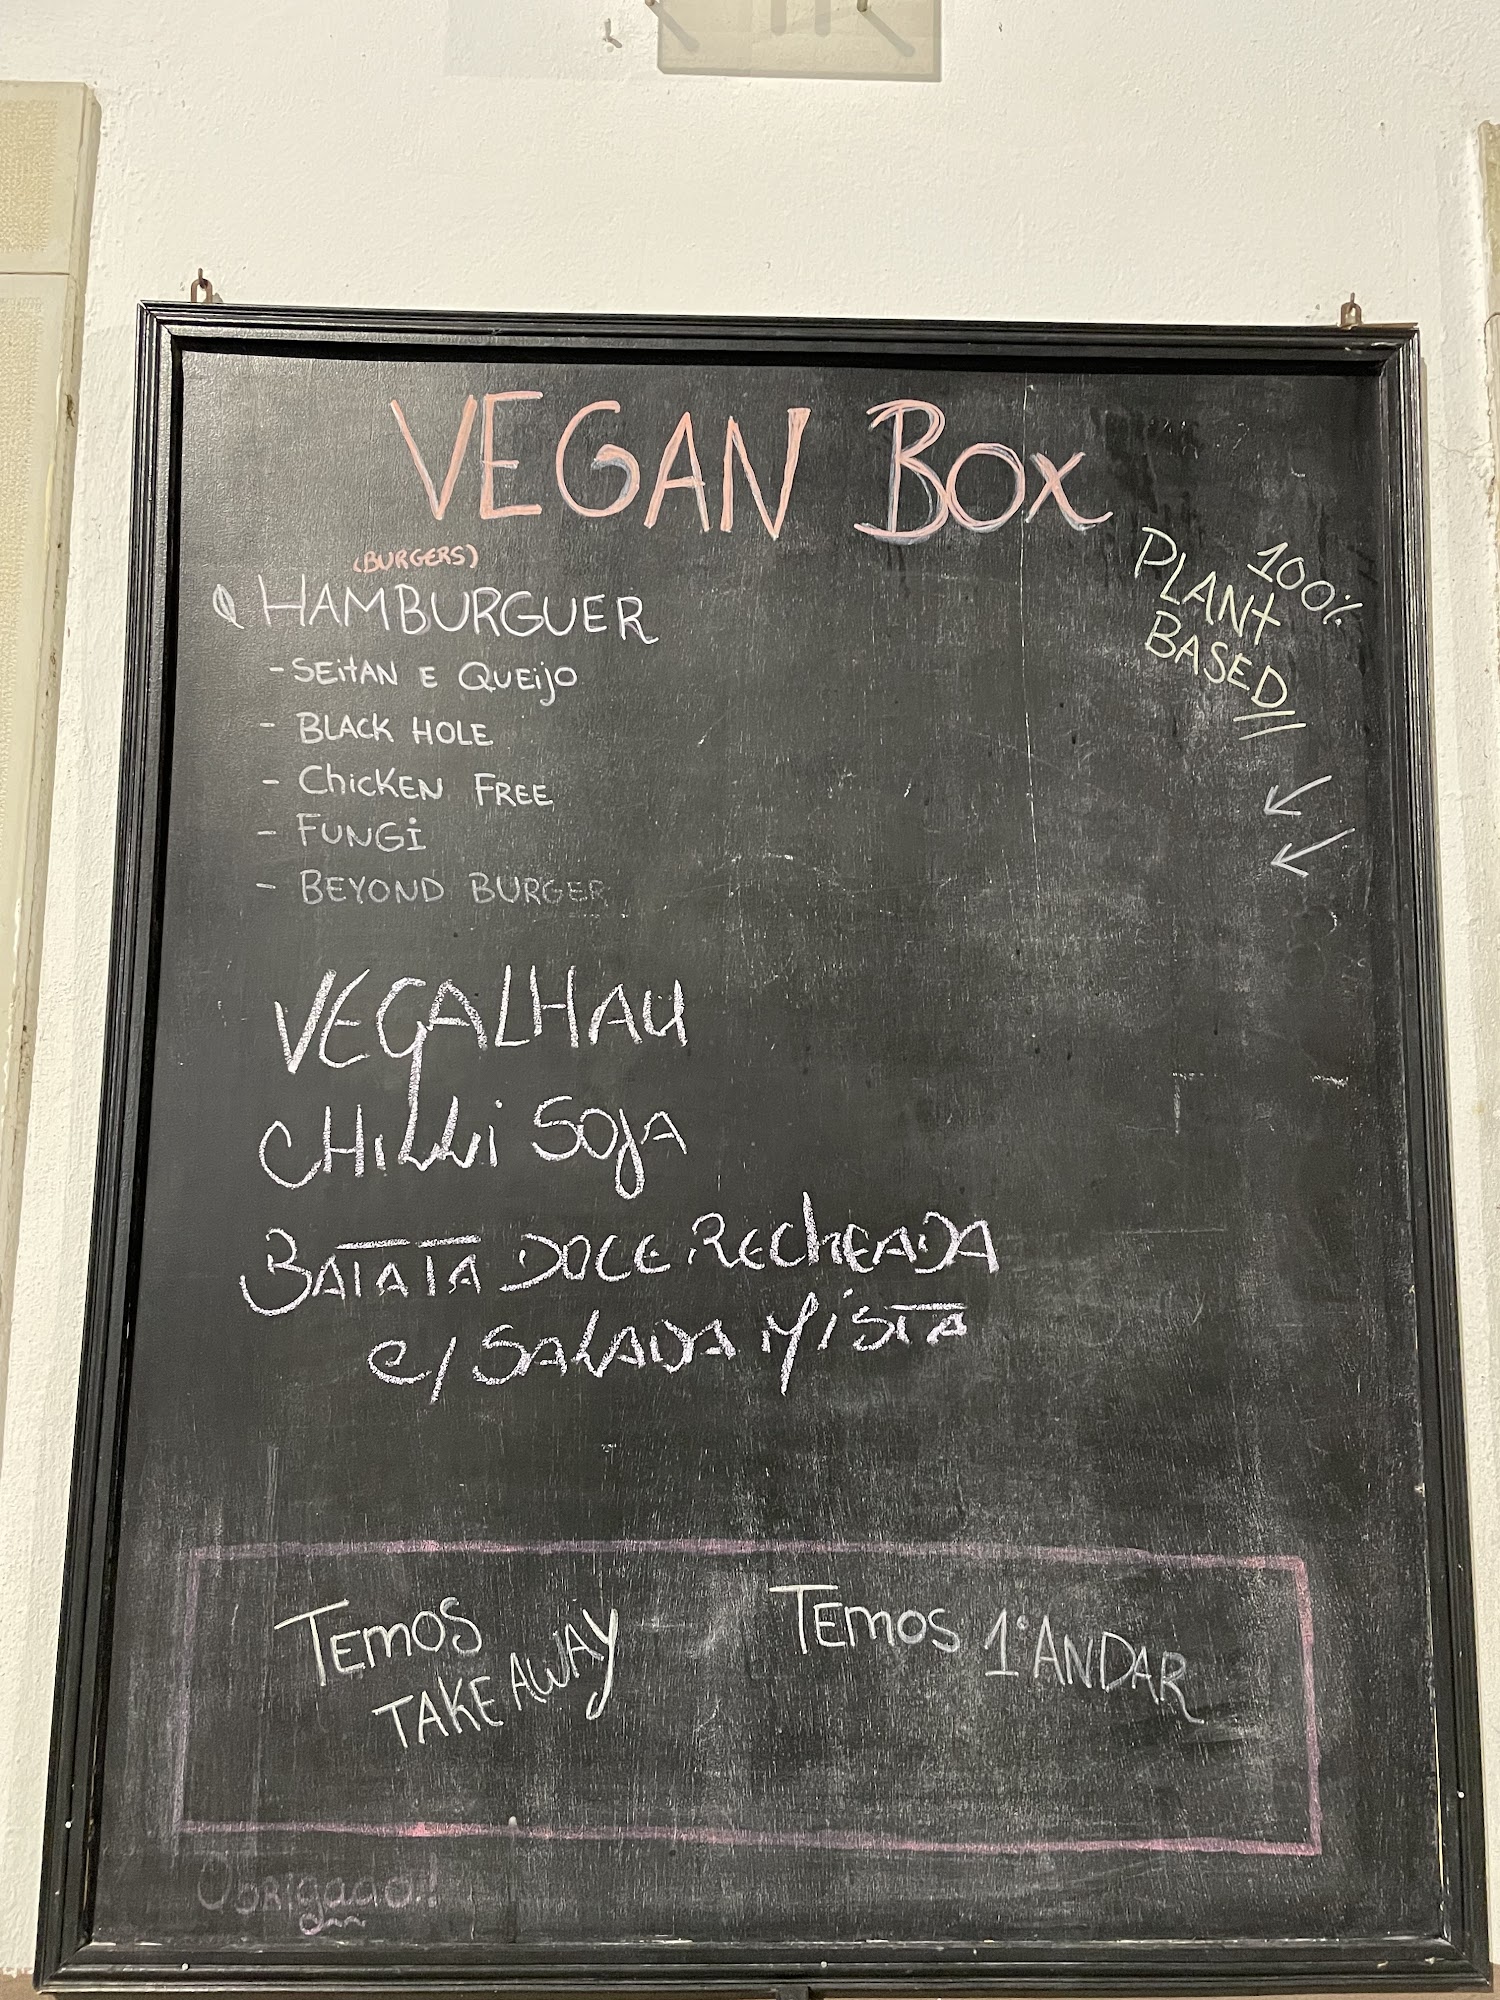 VEGAN BOX
100%
PLANT
BASED
(BURGERS)
HAMBURGUER
- SEITAN E QUEIJO
- BLACK HOLE
- CHICKEN FREE
- FUNGI
- BEYOND BURGER
VEGALHAU
CHILLI SOJA
BATATA DOCE RECHEADA
C/ SALADA MISTA
TEMOS
TAKE AWAY
TEMOS 1º ANDAR
OBRIGADO!